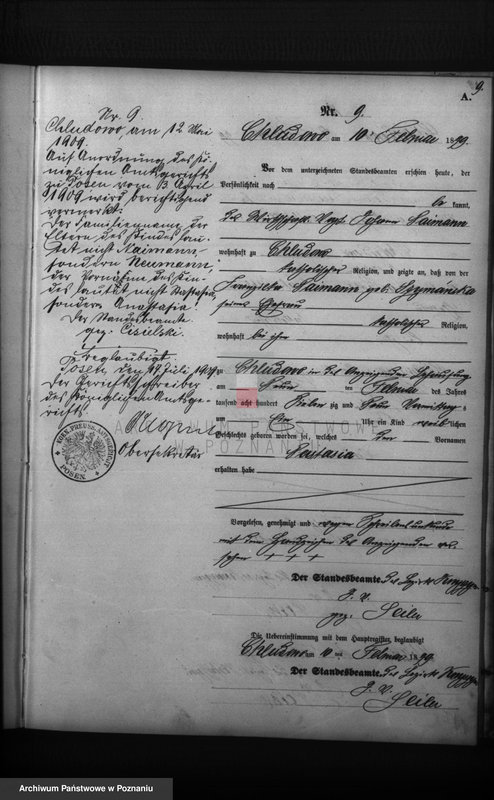 9.
A.
Nr. 9.
Chludowo, am 12 Mai
1909.
Auf Anordnung des kö-
niglichen Amtsgerichts
zu Posen vom 3 April
1909 wird berichtigend
vermerkt:
Der Familienname der
Eltern des Kindes lau-
tet nicht Naimann
sondern Neumann,
der Vorname des Kin-
des lautet nicht Nastasia,
sondern Anastasia.
Der Standesbeamte
gez. Cisielski.
Beglaubigt
Posen, den Juli
Der Gerichtsschreiber
des Königlichen Amtsge-
richts
Obersekretär
KÖN. PREUSS. AMTSGERICHT
POSEN.
Nr. 9.
Chludowo am 10 Februar 1879.
Vor dem unterzeichneten Standesbeamten erschien heute, der
Persönlichkeit nach
be kannt,
der Wirthschafts Vogt Johann Naimann
wohnhaft zu Chludowo
katholischer Religion, und zeigte an, daß von der
Franziska Naimann geb.
seiner Ehefrau
katholischer Religion,
wohnhaft bei ihm
zu Chludowo in des Anzeigenden Behausung
am Neun ten Februar des Jahres
tausend acht hundert Sieben zig und Neun Vormittags
um Ein Uhr ein Kind weib lichen
Geschlechts geboren worden sei, welches den Vornamen
Nastasia
erhalten habe
Vorgelesen, genehmigt und wegen Schreibensunkunde
mit dem Handzeichen des Anzeigenden ver-
sehen + + +
Der Standesbeamte des Bezirks
J. V.
gez. Seiler
Die Uebereinstimmung mit dem Hauptregister beglaubigt
Chludowo am 10 ten Februar 1879.
Der Standesbeamte des Bezirks
J. V.
Seiler
ARCHIWUM PAŃSTWOWE
W POZNANIU
Archiwum Państwowe w Poznaniu